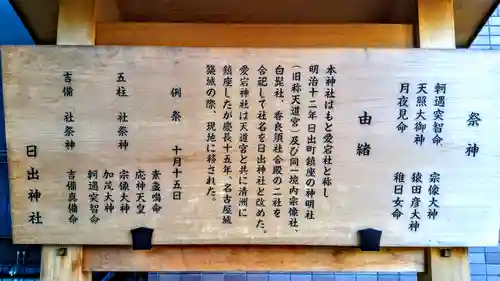 祭神
軻遇突智命 宗像大神
天照大御神 猿田彦大神
月夜見命 稚日女命
由緒
本神社はもと愛宕社と称し
明治十二年日出町鎮座の神明社
（旧称天道宮）及び同一境内宗像社、
白髭社、香良須社合殿の二社を
合祀して社名を日出神社と改めた。
愛宕神社は天道宮と共に清洲に
鎮座したが慶長十五年、名古屋城
築城の際、現地に移された。
例祭 十月十五日
素盞鳴命
応神天皇
五柱 社祭神 宗像大神
加茂大神
軻遇突智命
吉備 社祭神 吉備真備命
日出神社